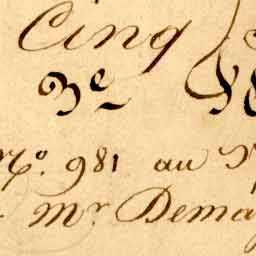 Cinq
3e
No. 981 au
Mr Dema